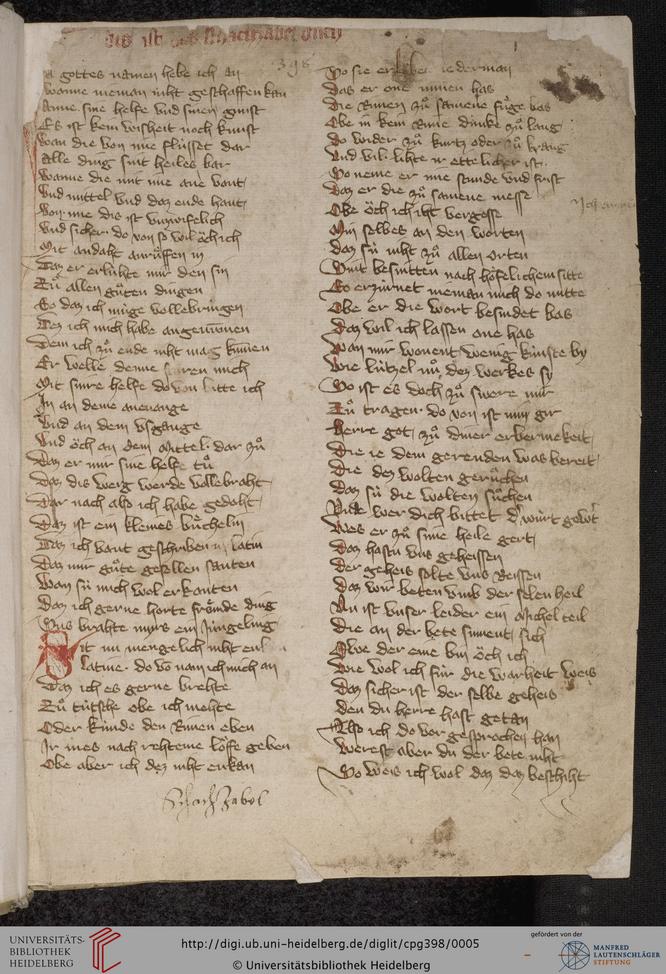 dis ist das schachzabel buch
398
gottes namen hebe ich an
wanne nieman niht geschaffen kan
Anne sine helfe vnd sinen gunst
Es ist kein wisheit noch kunst
wan die von ime flússet dar
Alle ding sint heiles bar
wanne die mit ime ane vant
vnd mittel vnd daz ende hant
von ime dis ist vnzwifelich
vnd sicher do von so wil öch ich
Mit andaht anrüffen in
Daz er erlúhte mir den sin
Zů allen gůten dingen
So daz ich múge vollebringen
Dez ich mich habe angenumen
Dem ich zů ende niht mag kumen
Er welle denne mich
Mit sinre helfe do von bitte ich
In an deme anevange
vnd an dem vsgange
vnd öch an dem Mittel dar zů
Daz er mir sine helfe tů
Daz dis werg werde vollebraht
Dar nach also ich habe gedoht
Daz ist ein kleines bůchelin
Daz ich vant geschriben in latin
Daz mir gůte gesellen santen
wan sú mich wol erkanten
Daz ich gerne horte frömde ding
vns brahte mirs ein Jungeling
Sit nu mengelich niht enkan
latine do von nam ich mich an
Daz ich es gerne brehte
Zů tútsche obe ich mehte
Oder kúnde den Rimen eben
Ir mes nach rehteme löfe geben
Obe aber ich dez niht enkan
Schachzabol
So sie ieder man
Daz er one nimen has
Die Rimen zů samene fůge bas
Obe in kein Rime dunke zů lang
Do wider zů kurtz oder zů krang
vnd vil lihte ir ettelicher ist
So neme er ime stunde vnd frist
Daz er die zů samene messe
Obe öch ich iht vergesse
Min selbes an den worten
Daz sú niht zů allen orten
Sint besnitten nach höfelichem sitte
So erzúrnet nieman mich do mitte
Obe er die wort besnidet bas
Daz wil ich lassen one has
wan mir wonent wenig kúnste by
wie lútzel nu dez werkes sy
So ist es doch zů swere mir
Zů tragen do von ist min gir
Herre got zů diner erbermekeit
Die ie dem gerenden was bereit
Die dez wolten gerůchen
Daz sú die wolten sůchen
wer dich bittet der wúrt gewert
wes er zů sime heile gert
Daz hastu vns geheissen
Der geheis solte vns reissen
Daz wir beten vmb der selen heil
Nu ist vnser leider ein Michel teil
Die an der bete sument sich
Owe der eine bin öch ich
wie wol ich fúr die warheit weis
Daz sicher ist der selbe geheis
Den du herre hast getan
Also ich do vor gesprochen han
werest aber du der bete niht
So weis ich wol daz daz beschiht
UNIVERSITÄTS-
BIBLIOTHEK
HEIDELBERG
http://digi.ub.uni-heidelberg.de/diglit/cpg398/0005
© Universitätsbibliothek Heidelberg
gefördert von der
MANFRED
LAUTENSCHLÄGER
STIFTUNG